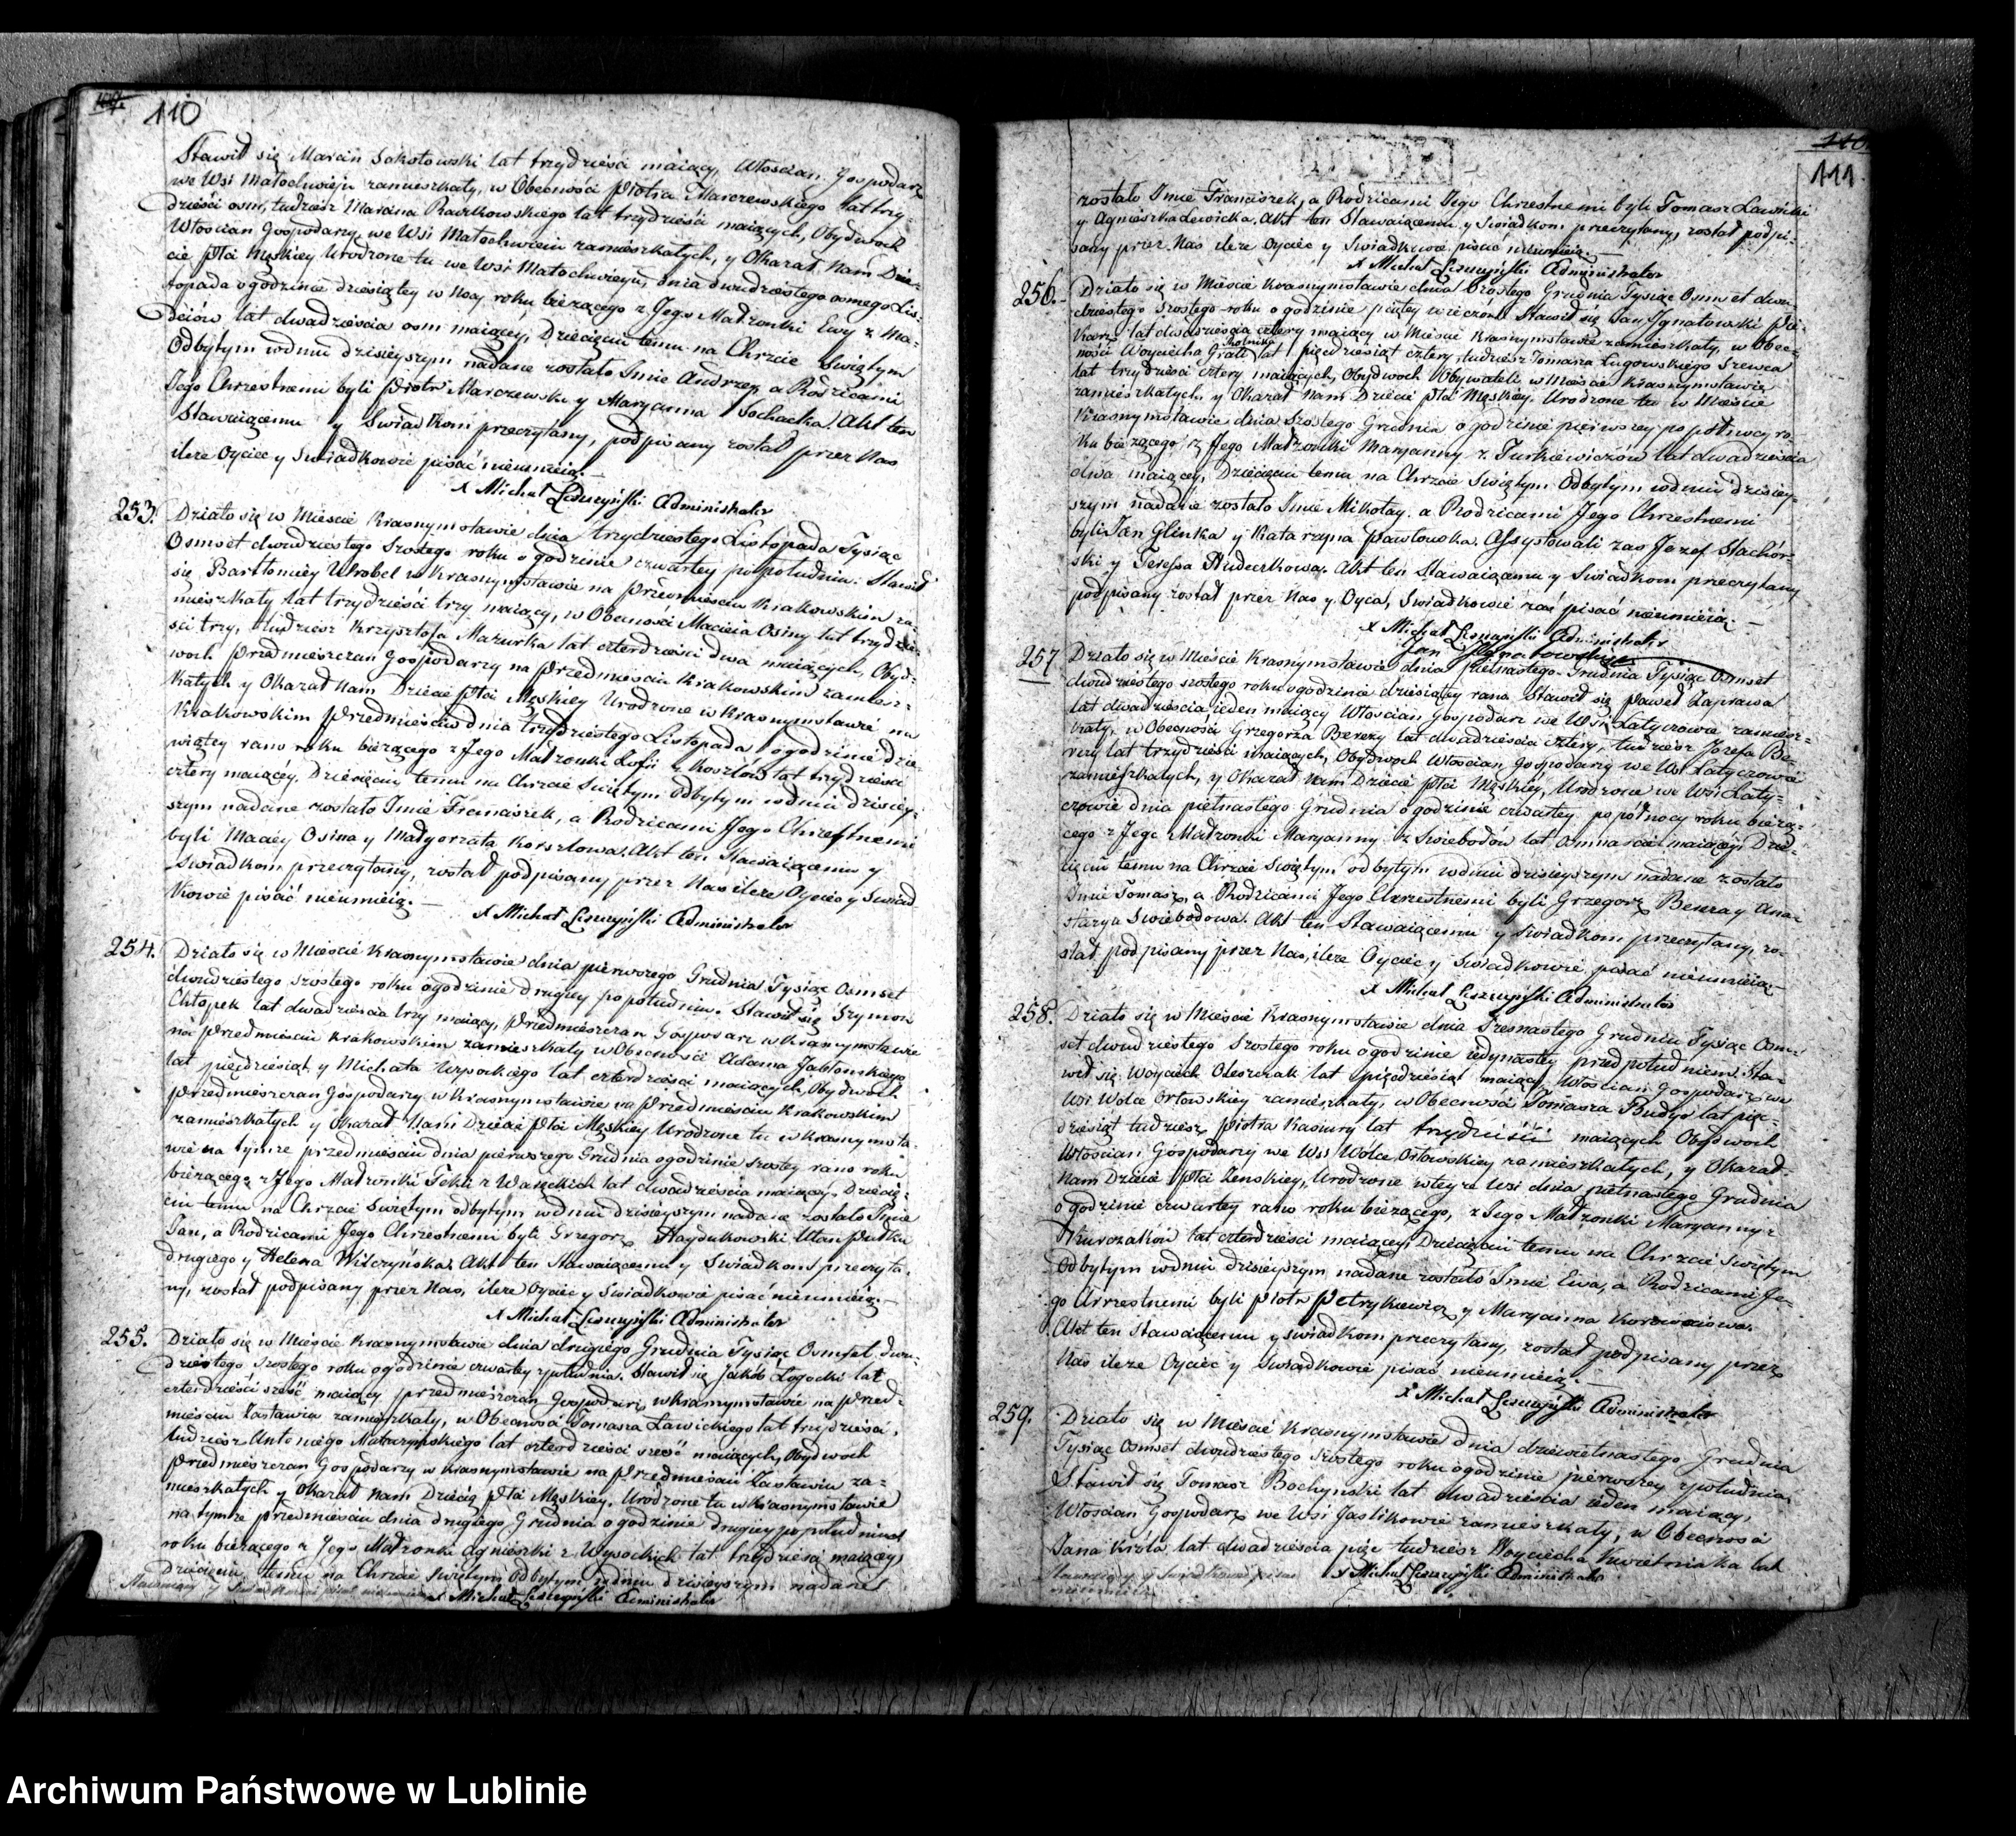 110
Stawił się Marcin Sokołowski lat trzydzieści maiący, Włościan Gospodarz
we Wsi Małochwieju zamieszkały, w Obecności Piotra Marczewskiego lat trzy-
dzieści osm, tudzież Marcina Raczkowskiego lat trzydzieści maiących, Obydwoch
Włościan Gospodarzy we Wsi Małochwieiu zamieszkałych, y Okazał Nam Dzie-
cie Płci Męskiey Urodzone tu we Wsi Małochwieyu, dnia dwudziestego osmego Lis-
topada o godzinie dziesiątey w Nocy roku bieżącego z Jego Małżonki Ewy z
lat dwadzieścia osm maiącey, Dziecięciu temu na Chrzcie Swiętym
Odbytym wdniu dzisieyszym nadane zostało Imie Andrzey, a Rodzicami
Jego Chrzestnemi byli Piotr Marczewski y Maryanna Sochacka. Akt ten
Stawaiącemu y Swiadkom przeczytany, podpisany został przez Nas
ileze Oyciec y Swiadkowie pisać nieumieią.
X Michał Leszczyński Administrator
253. Działo się w Mieście Krasnymstawie dnia trzydziestego Listopada Tysiąc
Osmset dwudziestego szostego roku o godzinie czwartey popołudniu. Stawił
się Bartłomiey Wrobel w Krasnymstawie na Przedmieściu Krakowskim za-
mieszkały lat trzydzieści trzy maiący, w Obecności Macieia Osiny lat trzydzie-
ści trzy, tudzież Krzysztofa Mazurka lat czterdzieści dwa maiących, Obyd-
woch Przedmieszczan Gospodarzy na Przedmieściu Krakowskim zamiesz-
kałych y Okazał Nam Dziecie Płci Męskiey Urodzone w Krasnymstawie na
Krakowskim Przedmieściu dnia trzydziestego Listopada o godzinie dzie-
wiątey rano roku bieżącego z Jego Małżonki Zofii z Koszlów lat trzydzieści
cztery maiącey, Dziecięciu temu na Chrzcie Swiętym Odbytym wdniu dzisiey-
szym nadane zostało Imie Franciszek, a Rodzicami Jego Chrzestnemi
byli Maciey Osina y Małgorzata Korszlowa. Akt ten Stawaiącemu y
Swiadkom przeczytany, został podpisany przez Nas ileze Oyciec y Swiad
kowie pisać nieumieią.
X Michał Leszczyński Administrator
254. Działo się w Mieście Krasnymstawie dnia pierwszego Grudnia Tysiąc Osmset
dwudziestego szostego roku o godzinie drugiey popołudniu. Stawił się Szymon
Chłopek lat dwadzieścia trzy maiący, Przedmieszczan Gospodarz w Krasnymstawie
na Przedmieściu Krakowskim zamieszkały w Obecności Adama Jabłonskiego
lat pięćdziesiąt y Michała Wysockiego lat czterdzieści maiących, Obydwoch
Przedmieszczan Gospodarzy w Krasnymstawie na Przedmieściu Krakowskim
zamieszkałych y Okazał Nam Dziecie Płci Męskiey Urodzone tu w Krasnymsta-
wie na tymze przedmieściu dnia pierwszego Grudnia o godzinie szostey rano roku
bieżącego z Jego Małżonki Tekli z lat dwadzieścia maiącey. Dziecię-
ciu temu na Chrzcie Swiętym odbytym wdniu dzisieyszym nadane zostało Imie
Jan, a Rodzicami Jego Chrzestnemi byli Grzegorz Haydukowski Ułan Pułku
drugiego y Helena Wilczyńska. Akt ten Stawaiącemu y Swiadkom przeczyta-
ny, został podpisany przez Nas, ileze Oyciec y Swiadkowie pisać nieumieią.
X Michał Leszczyński Administrator
255. Działo się w Mieście Krasnymstawie dnia drugiego Grudnia Tysiąc Osmset dwu-
dziestego szostego roku o godzinie czwartey zpołudnia. Stawił się Jakób Łogocki lat
czterdzieści sześć maiący przedmieszczan Gospodarz w Krasnymstawie na Przed-
mieściu Zastawiu zamieszkały, w Obecności Tomasza Ławickiego lat trzydzieści,
tudzież Antoniego lat czterdzieści sześć maiących, Obydwoch
Przedmieszczan Gospodarzy w Krasnymstawie na Przedmieściu Zastawiu za-
mieszkałych y Okazał Nam Dziecię Płci Męskiey, Urodzone tu w Krasnymstawie
na tymże przedmieściu dnia drugiego Grudnia o godzinie drugiey popołudniu
roku bieżącego z Jego Małżonki Agnieszki z Wysockich lat trzydzieści maiącey
Dziecięciu temu na Chrzcie Swiętym Odbytym wdniu dzisieyszym nadane
Stawaiący y Swiadkowie pisać nieumieią X Michał Leszczyński Administrator
111
zostało Imie Franciszek, a Rodzicami Jego Chrzestnemi byli Tomasz Ławicki
y Agnieszka Lewicka. Akt ten Stawaiącemu y Swiadkom przeczytany, został podpi-
sany przez Nas ileze Oyciec y Swiadkowie pisać nieumieią.
X Michał Leszczyński Administrator
256. Działo się w Mieście Krasnymstawie dnia szostego Grudnia Tysiąc Osmset dwu-
dziestego szostego roku o godzinie piątey wieczór. Stawił się Jan Ignatowski Pie-
karz lat dwadzieścia cztery maiący w Mieście Krasnymstawie zamieszkały, w Obec-
ności Woyciecha Rolnika lat pięćdziesiąt cztery, tudzież Tomasza Ługowskiego Szewca
lat trzydzieści cztery maiących, Obydwoch Obywateli w Mieście Krasnymstawie
zamieszkałych, y Okazał Nam Dziecie Płci Męskiey. Urodzone tu w Mieście
Krasnymstawie dnia szostego Grudnia o godzinie pierwszey po połnocy ro-
ku bieżącego z Jego Małżonki Maryanny z Turkiewiczów lat dwadzieścia
dwa maiącey, Dziecięciu temu na Chrzcie Swiętym Odbytym wdniu dzisiey-
szym nadane zostało Imie Mikołay. a Rodzicami Jego Chrzestnemi
byli Jan Glinka y Katarzyna Pawłowska. Assystowali zaś Jozef Stachór-
ski y Teressa Hudeczkowa. Akt ten Stawaiącemu y Swiadkom przeczytany
podpisany został przez Nas y Oyca, Swiadkowie zaś pisać nieumieią.
X Michał Leszczyński Administrator
Jan Ignatowski
257 Działo się w Mieście Krasnymstawie dnia pietnastego Grudnia Tysiąc Osmset
dwudziestego szostego roku o godzinie dziesiątey rana Stawił się Paweł Zaprawa
lat dwadzieścia ieden maiący Włościan Gospodarz we Wsi Łatyczowie zamiesz-
kały, w Obecności Grzegorza Berezy lat dwadzieścia cztery, tudzież Jozefa Be-
rezy lat trzydzieści maiących, Obydwoch Włościan Gospodarzy we Wsi Łatyczowie
zamieszkałych, y Okazał Nam Dziecie Płci Męskiey, Urodzone we Wsi Łaty-
czowie dnia pietnastego Grudnia o godzinie czwartey popółnocy roku bieżą-
cego z Jego Małżonki Maryanny z Swiebodów lat osmnaście maiącey, Dzie-
cięciu temu na Chrzcie Swiętym odbytym wdniu dzisieyszym nadane zostało
Imie Tomasz, a Rodzicami Jego Chrzestnemi byli Grzegorz Bereza y Ana-
stazya Swiebodowa. Akt ten Stawaiącemu y Swiadkom przeczytany, zo-
stał podpisany przez Nas, ileze Oyciec y Swiadkowie pisać nieumieią.
X Michał Leszczyński Administrator
258. Działo się w Mieście Krasnymstawie dnia szesnastego Grudnia Tysiąc Osm-
set dwudziestego szostego roku o godzinie iedynastey przed południem. Sta-
wił się Woyciech Oleszczak lat pięćdziesiąt maiący, Włościan Gospodarz we
Wsi Wolce Orłowskiey zamieszkały, w Obecności Tomasza Budys lat pięć-
dziesiąt tudzież Piotra Kasiury lat trzydzieści maiących Obydwoch
Włościan Gospodarzy we Wsi Wólce Orłowskiey zamieszkałych, y Okazał
Nam Dziecie Płci Zenskiey, Urodzone wteyże Wsi dnia pietnastego Grudnia
o godzinie czwartey rano roku bieżącego, z Jego Małżonki Maryanny z
lat czterdzieści maiącey, Dziecięciu temu na Chrzcie Swiętym
Odbytym wdniu dzisieyszym nadane zostało Imie Ewa, a Rodzicami Je-
go Chrzestnemi byli Piotr Petrykiewicz y Maryanna
Akt ten Stawaiącemu y Swiadkom przeczytany, został podpisany przez
Nas ileze Oyciec y Swiadkowie pisać nieumieią.
X Michał Leszczyński Administrator
259. Działo się w Mieście Krasnymstawie dnia dziewietnastego Grudnia
Tysiąc Osmset dwudziestego szostego roku o godzinie pierwszey zpołudnia
Stawił się Tomasz Bochyński lat dwadzieścia ieden maiący,
Włościan Gospodarz we Wsi Jaslikowie zamieszkały, w Obecności
Jana Króla lat dwadzieścia pięć tudzież Woyciecha Kwietniaka lat
Stawaiący y Swiadkowie pisać X Michał Leszczyński Administrator
nieumieią
Archiwum Państwowe w Lublinie